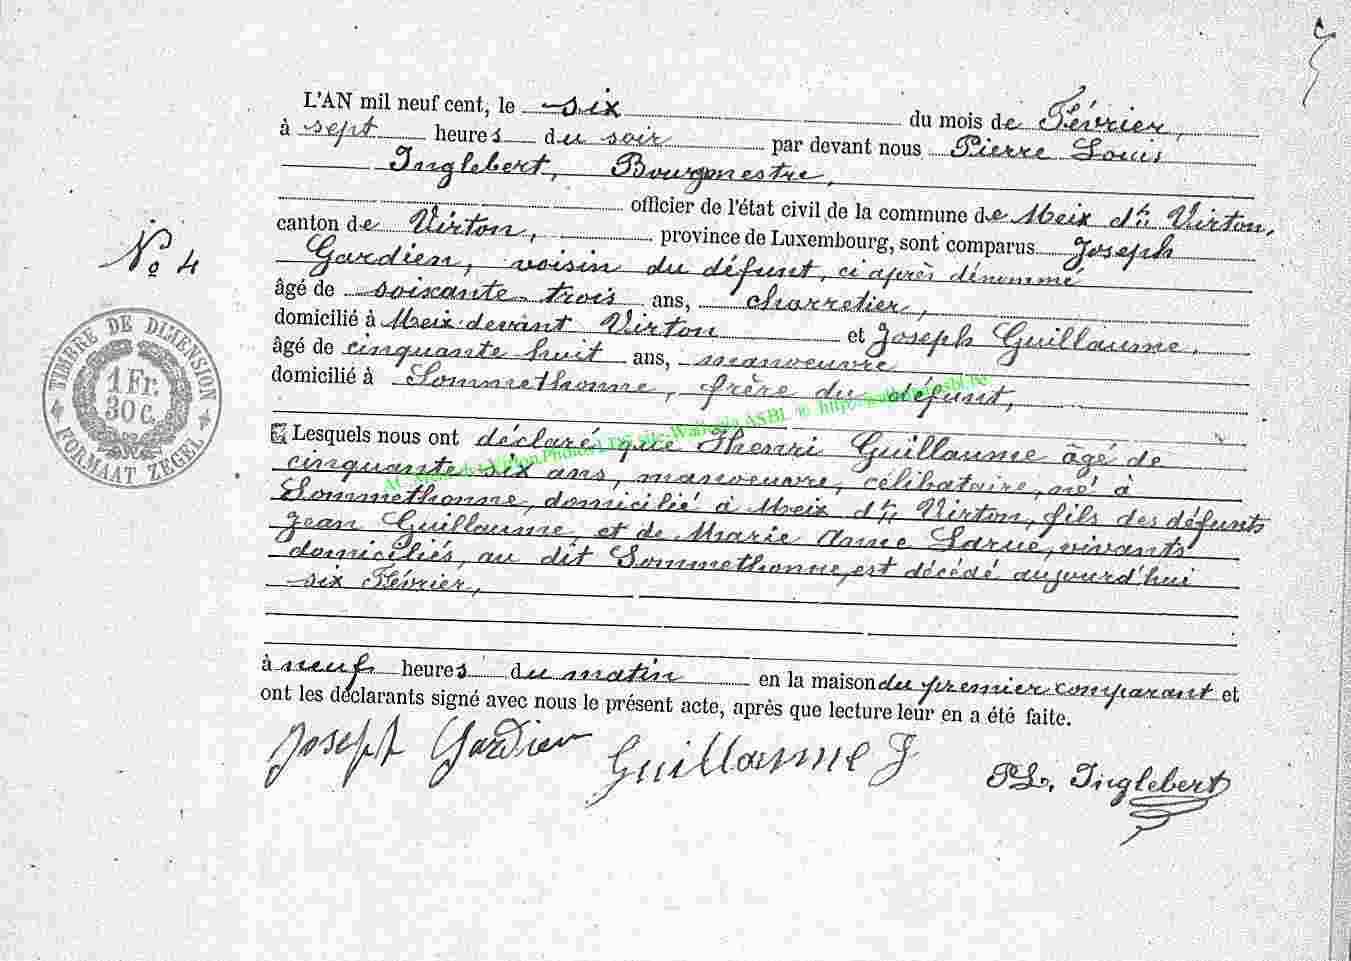 L'AN mil neuf cent, le six du mois de Février,
à sept heures du soir par devant nous Pierre Louis
Inglebert, Bourgmestre,
officier de l'état civil de la commune de Meix dt Virton,
canton de Virton, province de Luxembourg, sont comparus Joseph
Gardien, voisin du défunt, ci après dénommé
âgé de soixante-trois ans, charretier,
domicilié à Meix-devant Virton et Joseph Guillaume,
âgé de cinquante huit ans, manoeuvre
domicilié à Sommethonne, frère du défunt,
Lesquels nous ont déclaré que Henri Guillaume âgé de
cinquante six ans, manoeuvre, célibataire, né à
Sommethonne, domicilié à Meix dt Virton, fils des défunts
Jean Guillaume, et de Marie Anne Larue, vivants
domiciliés, au dit Sommethonne, est décédé aujourd'hui
six Février,
à neuf heures du matin en la maison du premier comparant et
ont les déclarants signé avec nous le présent acte, après que lecture leur en a été faite.
Joseph Gardien Guillaume J PL. Inglebert
No 4
TIMBRE DE DIMENSION
1 Fr.
30 c.
FORMAAT ZEGEL